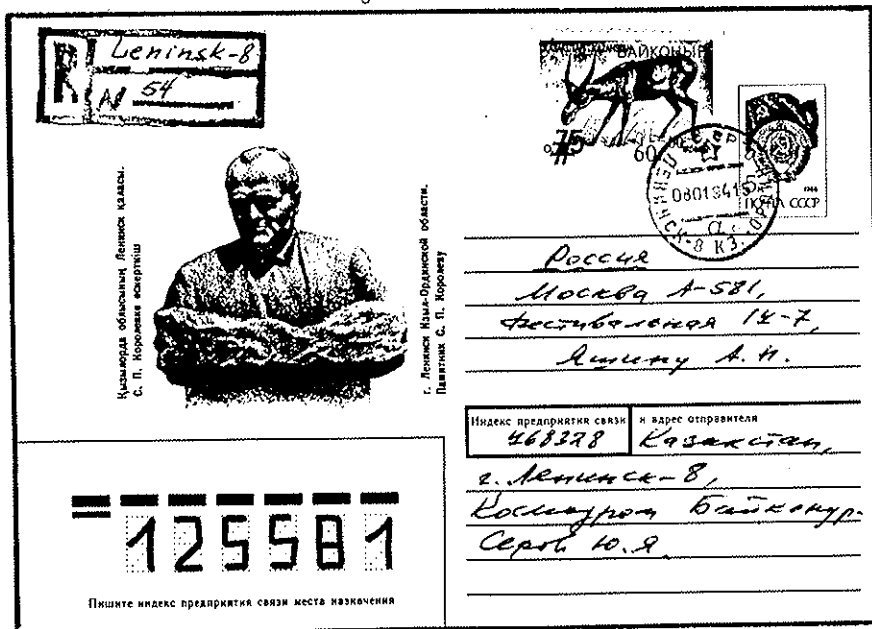 R Leningsk-8
N 54
БАЙКОНЫР
75
60
ЛЕНИНСК-8 КЗ.-ОРДИНСК
080194 15
а
1988
ПОЧТА СССР
Қызылорда облысының Ленинск қаласы.
С. П. Королевке ескерткіш
г. Ленинск Кзыл-Ординской области.
Памятник С. П. Королеву
Россия
Москва А-581,
Фестивальная 14-7,
Яшину А. Н.
Индекс предприятия связи и адрес отправителя
468328 Казахстан,
г. Ленинск-8,
Космодром Байконур.
Серов Ю. Я.
125581
Пишите индекс предприятия связи места назначения